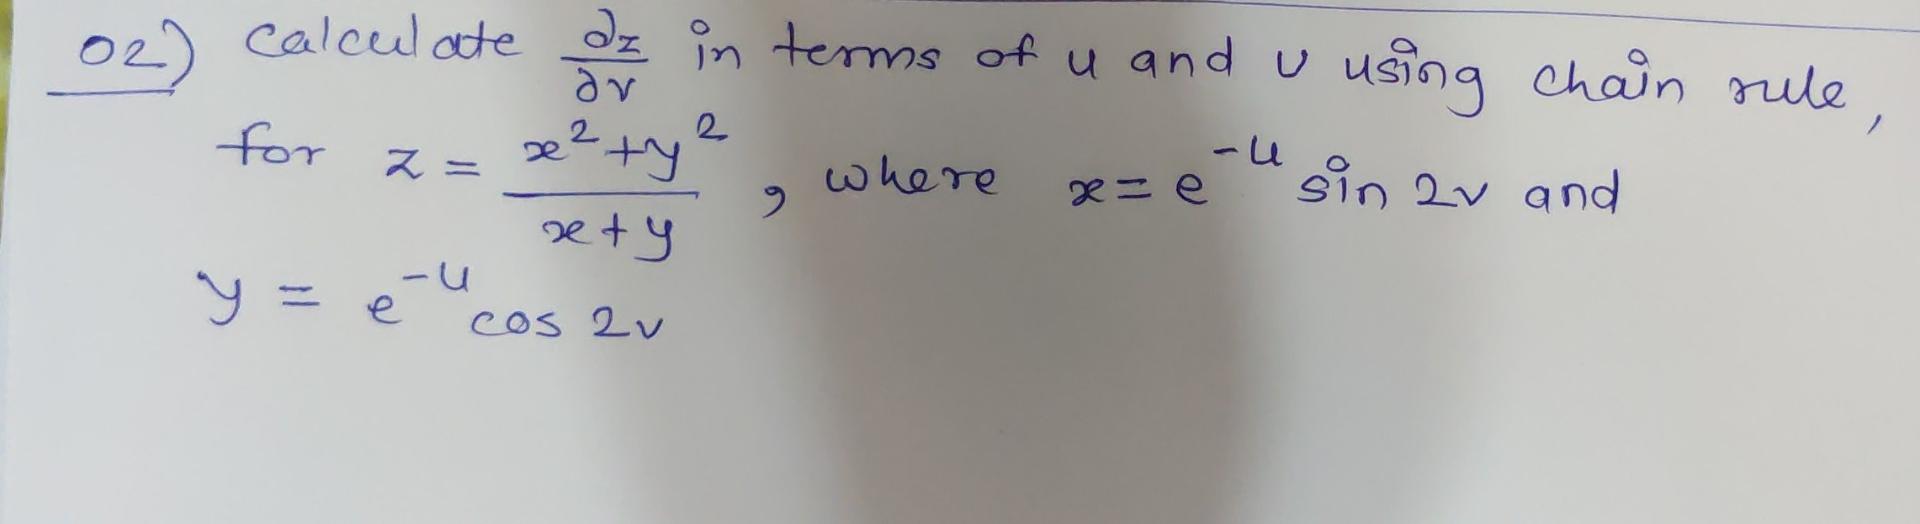 02) Calculate ∂z/∂v in terms of u and v using chain rule,
for z = (x²+y²)/(x+y), where x = e^(-u) sin 2v and
y = e^(-u) cos 2v